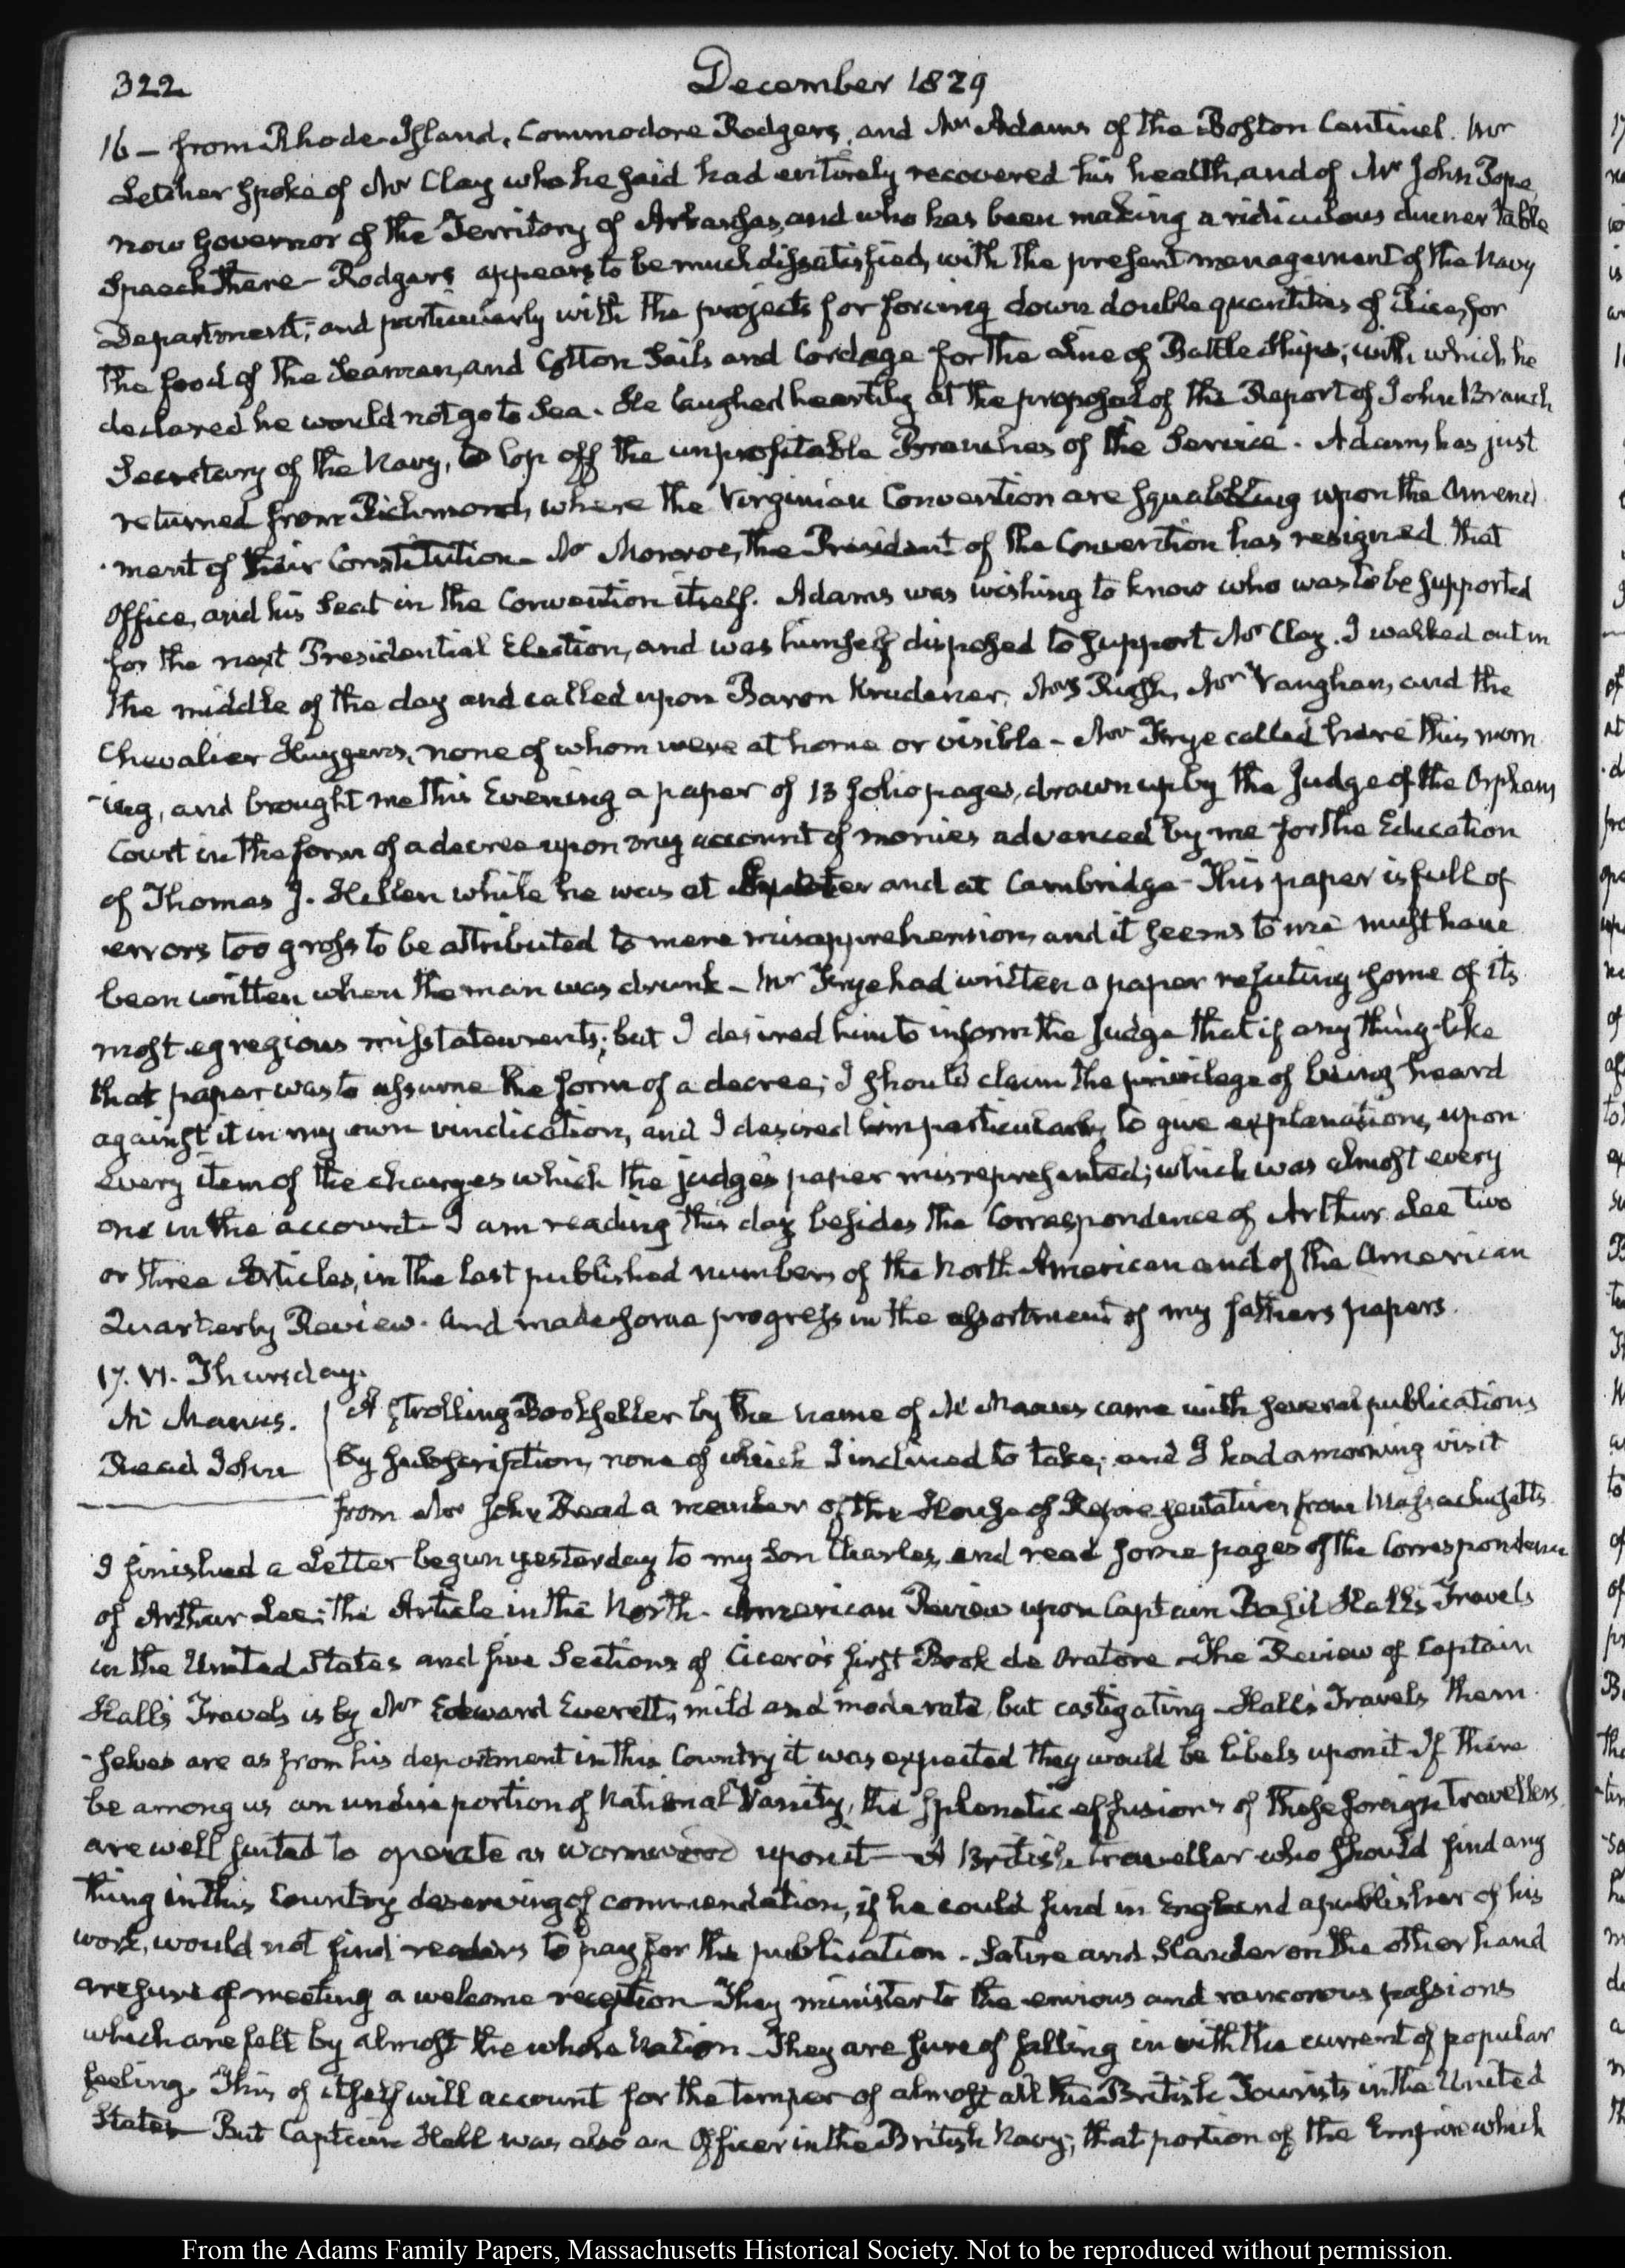 322
December 1829
16 — from Rhode-Island, Commodore Rodgers, and Mr Adams of the Boston Centinel. Mr
Letcher spoke of Mr Clay who he said had entirely recovered his health, and of Mr John Pope
now Governor of the Territory of Arkansas, and who has been making a ridiculous dinner table
Speech there — Rodgers appears to be much dissatisfied, with the present management of the Navy
Department, and particularly with the projects for forcing down double quantities of Rice, for
the food of the Seamen, and Cotton Sails and Cordage for the Line of Battle Ships; with which he
declared he would not go to Sea. He laughed heartily at the proposal of the Report of John Branch
Secretary of the Navy, to lop off the unprofitable Branches of the Service. Adams has just
returned from Richmond, where the Virginian Convention are squabbling upon the Amend
ment of their Constitution — Mr Monroe, the President of the Convention has resigned that
Office, and his Seat in the Convention itself. Adams was wishing to know who was to be supported
for the next Presidential Election, and was himself disposed to support Mr Clay. I walked out in
the middle of the day and called upon Baron Krudener, Mrs Rush, Mr Vaughan, and the
Chevalier Huygens, none of whom were at home or visible — Mr Frye called here this morn
-ing, and brought me this Evening a paper of 13 folio pages, drawn up by the Judge of the Orphans
Court in the form of a decree upon my account of monies advanced by me for the Education
of Thomas J. Hellen while he was at Exeter and at Cambridge — This paper is full of
errors too gross to be attributed to mere misapprehension, and it seems to me must have
been written when the man was drunk — Mr Frye had written a paper refuting some of its
most egregious misstatements; but I desired him to inform the Judge that if any thing like
that paper was to assume the form of a decree; I should claim the privilege of being heard
against it in my own vindication, and I desired him particularly to give explanations, upon
Every item of the charges which the judge's paper misrepresented; which was almost every
one in the account — I am reading this day besides the Correspondence of Arthur Lee two
or three Articles, in the last published numbers of the North American and of the American
Quarterly Review. And made some progress in the assortment of my fathers papers.
17. VI. Thursday.
Mc Manus.
Read John
A strolling Bookseller by the name of Mc Manus came with several publications
by subscription, none of which I inclined to take; and I had a morning visit
from Mr John Read a member of the House of Representatives from Massachusetts.
I finished a Letter begun yesterday to my Son Charles, and read some pages of the Correspondence
of Arthur Lee; the Article in the North-American Review upon Captain Basil Hall's Travels
in the United States and five Sections of Cicero's first Book de Oratore — The Review of Captain
Hall's Travels is by Mr Edward Everett, mild and moderate, but castigating — Hall's Travels them
-selves are as from his deportment in this Country it was expected they would be libels upon it If there
be among us an undue portion of National Vanity, the splenetic effusions of these foreign Travellers
are well suited to operate as wormwood upon it — A British traveller who should find any
thing in this Country deserving of commendation, if he could find in England a publisher of his
work, would not find readers to pay for the publication. Satire and Slander on the other hand
are sure of meeting a welcome reception — They minister to the envious and rancorous passions
which are felt by almost the whole Nation — They are sure of falling in with the current of popular
feeling. This of itself will account for the temper of almost all the British Tourists in the United
States — But Captain Hall was also an Officer in the British Navy; that portion of the Empire which
From the Adams Family Papers, Massachusetts Historical Society. Not to be reproduced without permission.